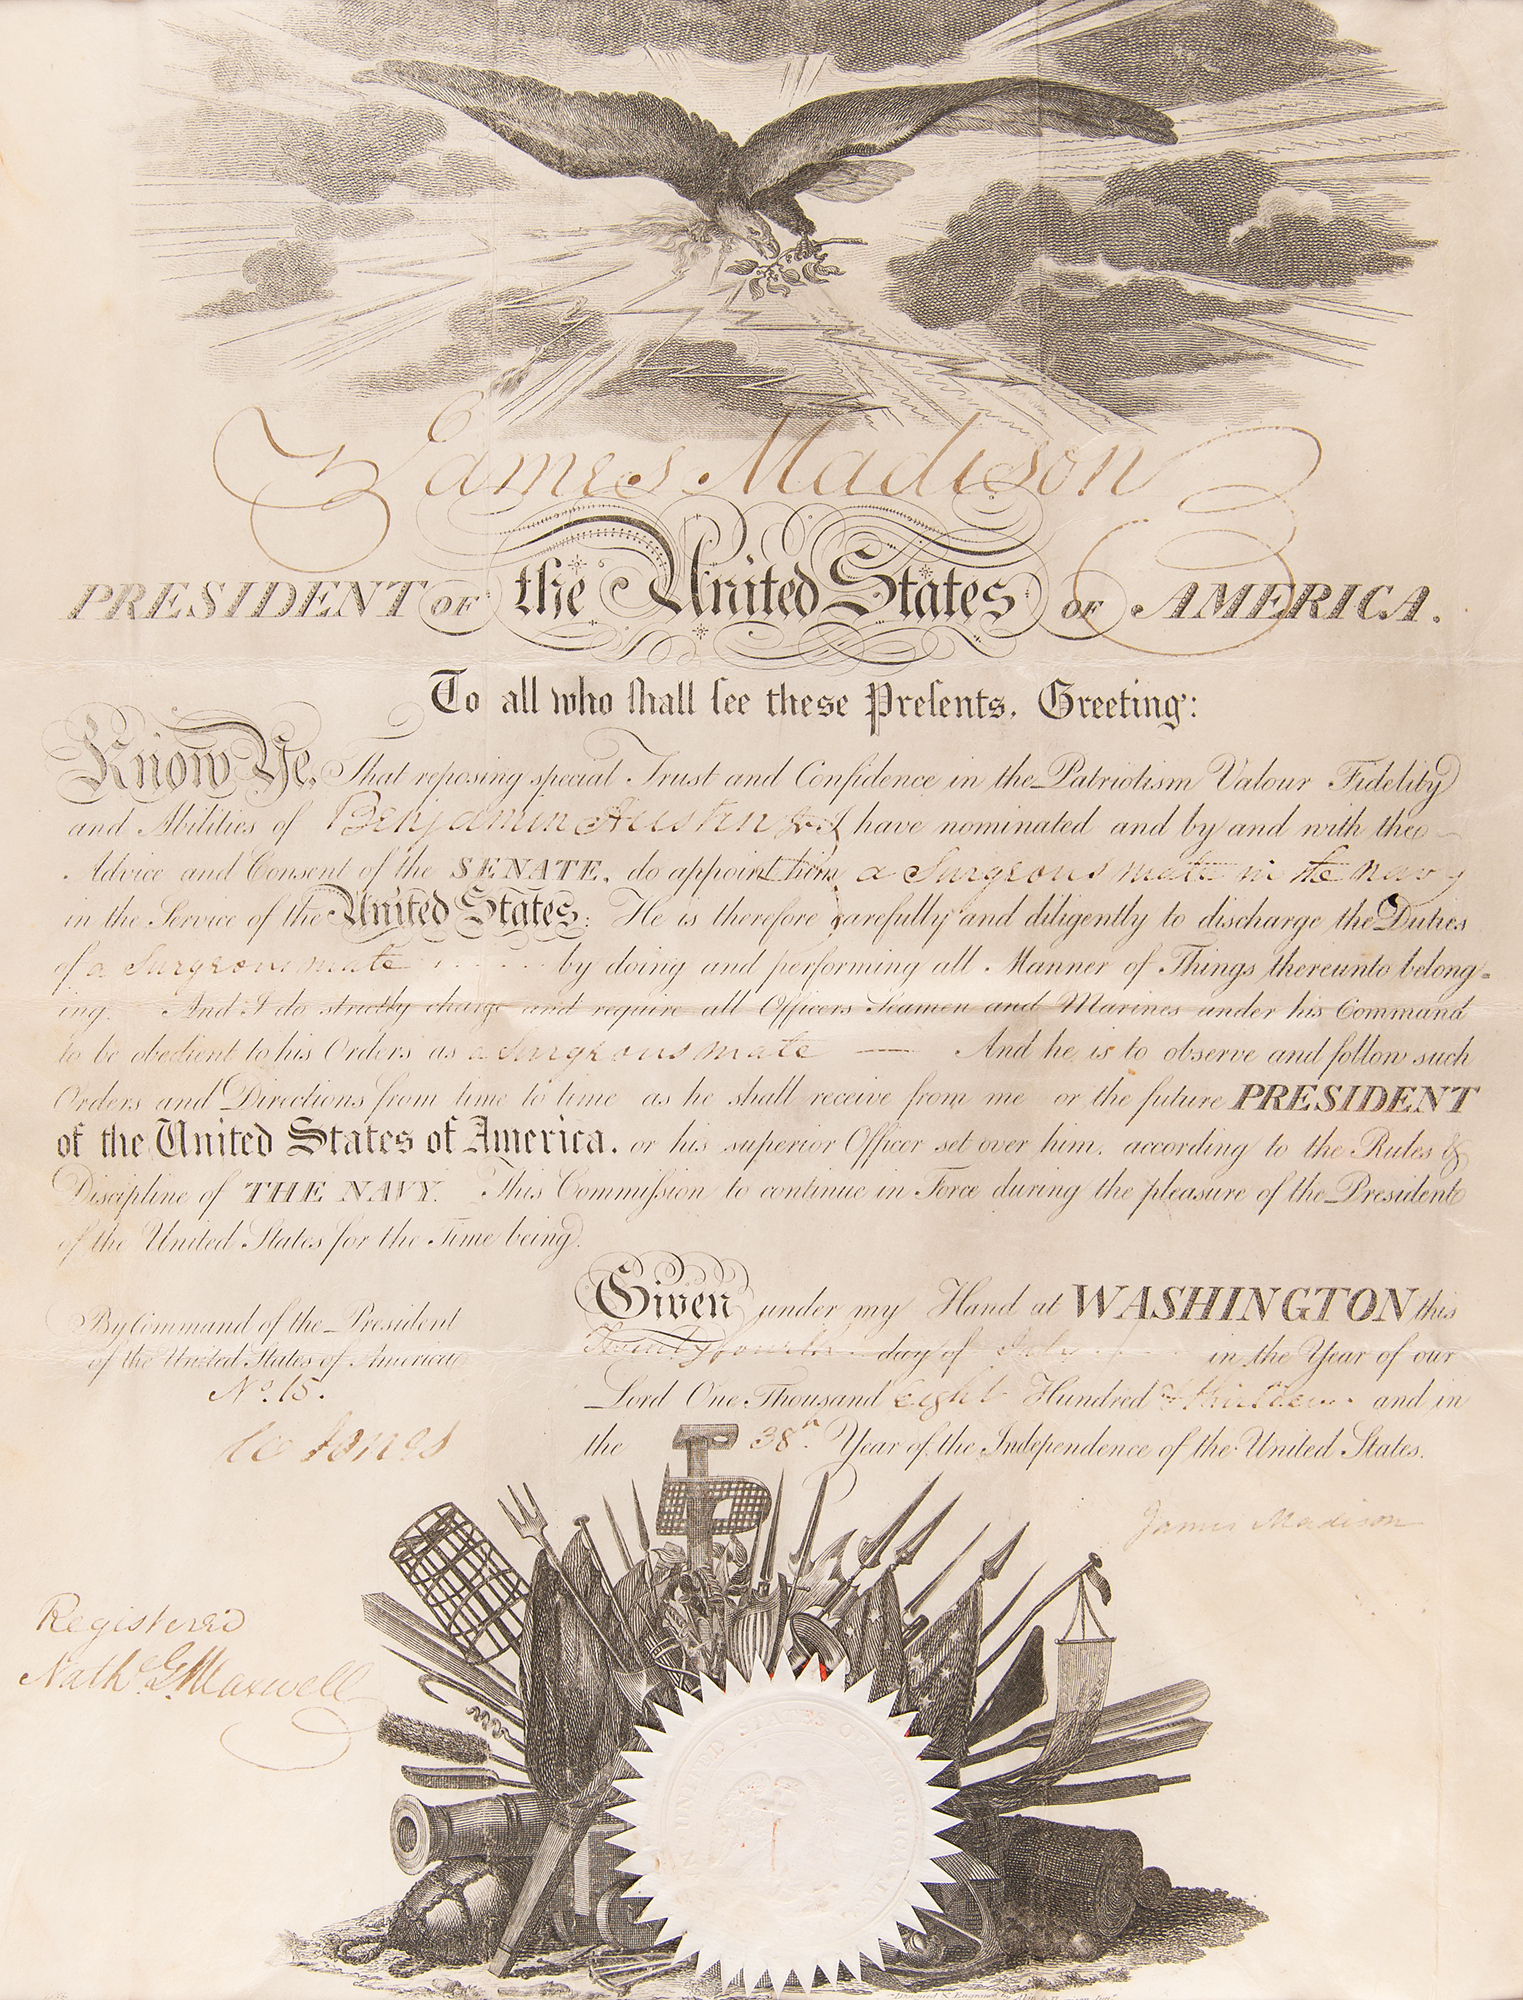 James Madison
PRESIDENT OF the United States OF AMERICA.
To all who shall see these Presents, Greeting:
Know Ye, That reposing special Trust and Confidence in the Patriotism Valour Fidelity
and Abilities of Benjamin Austin Jr I have nominated and by and with the
Advice and Consent of the SENATE, do appoint him a Surgeons mate in the navy
in the Service of the United States: He is therefore carefully and diligently to discharge the Duties
of a Surgeons mate by doing and performing all Manner of Things thereunto belong-
ing. And I do strictly charge and require all Officers Seamen and Marines under his Command
to be obedient to his Orders as a Surgeons mate — And he is to observe and follow such
Orders and Directions from time to time as he shall receive from me or the future PRESIDENT
of the United States of America, or his superior Officer set over him, according to the Rules &
Discipline of THE NAVY. This Commission to continue in Force during the pleasure of the President
of the United States for the Time being.
Given under my Hand at WASHINGTON this
Twenty fourth day of July in the Year of our
Lord One Thousand eight Hundred & thirteen and in
the 38th Year of the Independence of the United States.
By Command of the President
of the United States of America
No. 15.
W Jones
James Madison
Registered
Nathl G. Maxwell
UNITED STATES OF AMERICA